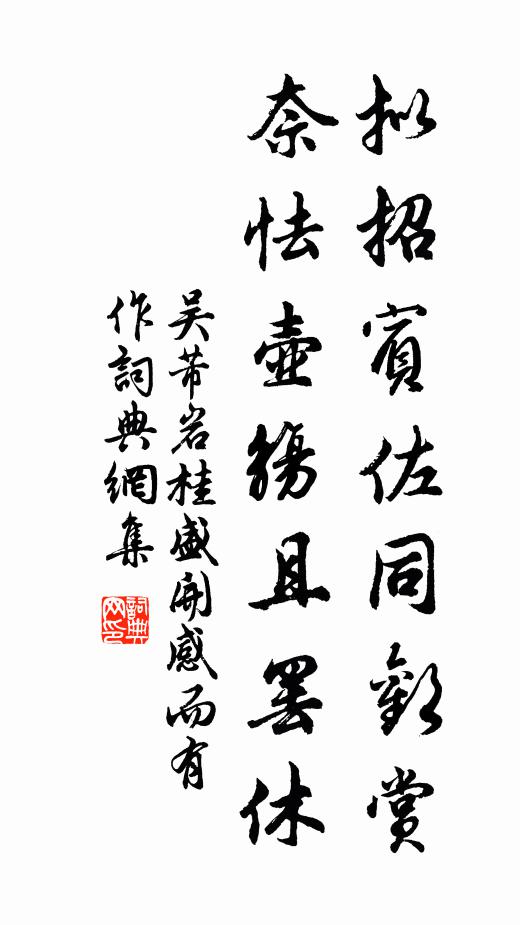 拟招賓佐同歡賞
奈怯壺觴且罢休
吴芾岩桂盛開感而有
作詞典網集
詞典网印